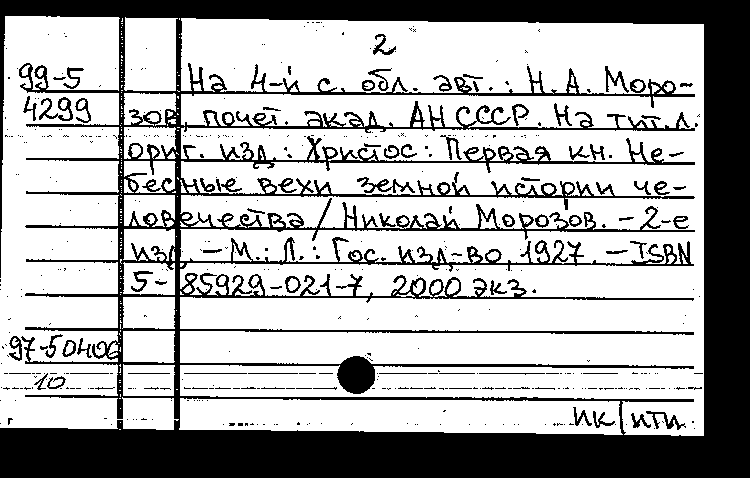 2
99-5 На 4-й с. обл. авт.: Н.А. Моро-
4299 зов, почет. акад. АН СССР. На тит.л.
ориг. изд.: Христос: Первая кн. Не-
бесные вехи земной истории че-
ловечества / Николай Морозов. - 2-е
изд. - М.; Л.: Гос. изд-во, 1927. - ISBN
5-85929-021-7, 2000 экз.
97-50406
10
ик/ити